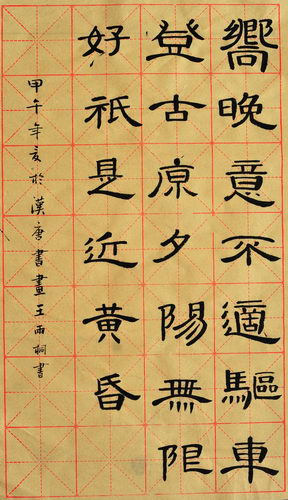 嚮晚意不適驅車
登古原夕陽無限
好祇是近黃昏
甲午年夏於漢唐書畫王雨桐書